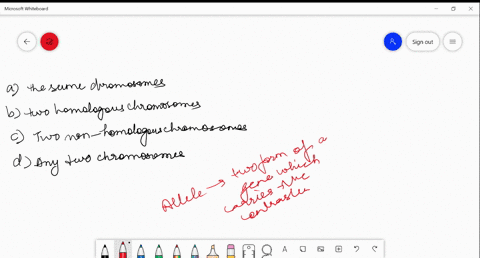 Microsoft Whiteboard
Sign out
a) the same chromosomes
b) two homologous chromosomes
c) Two non-homologous chromosomes
d) Any two chromosomes
Allele → two form of a
gene which
carries the
contraster